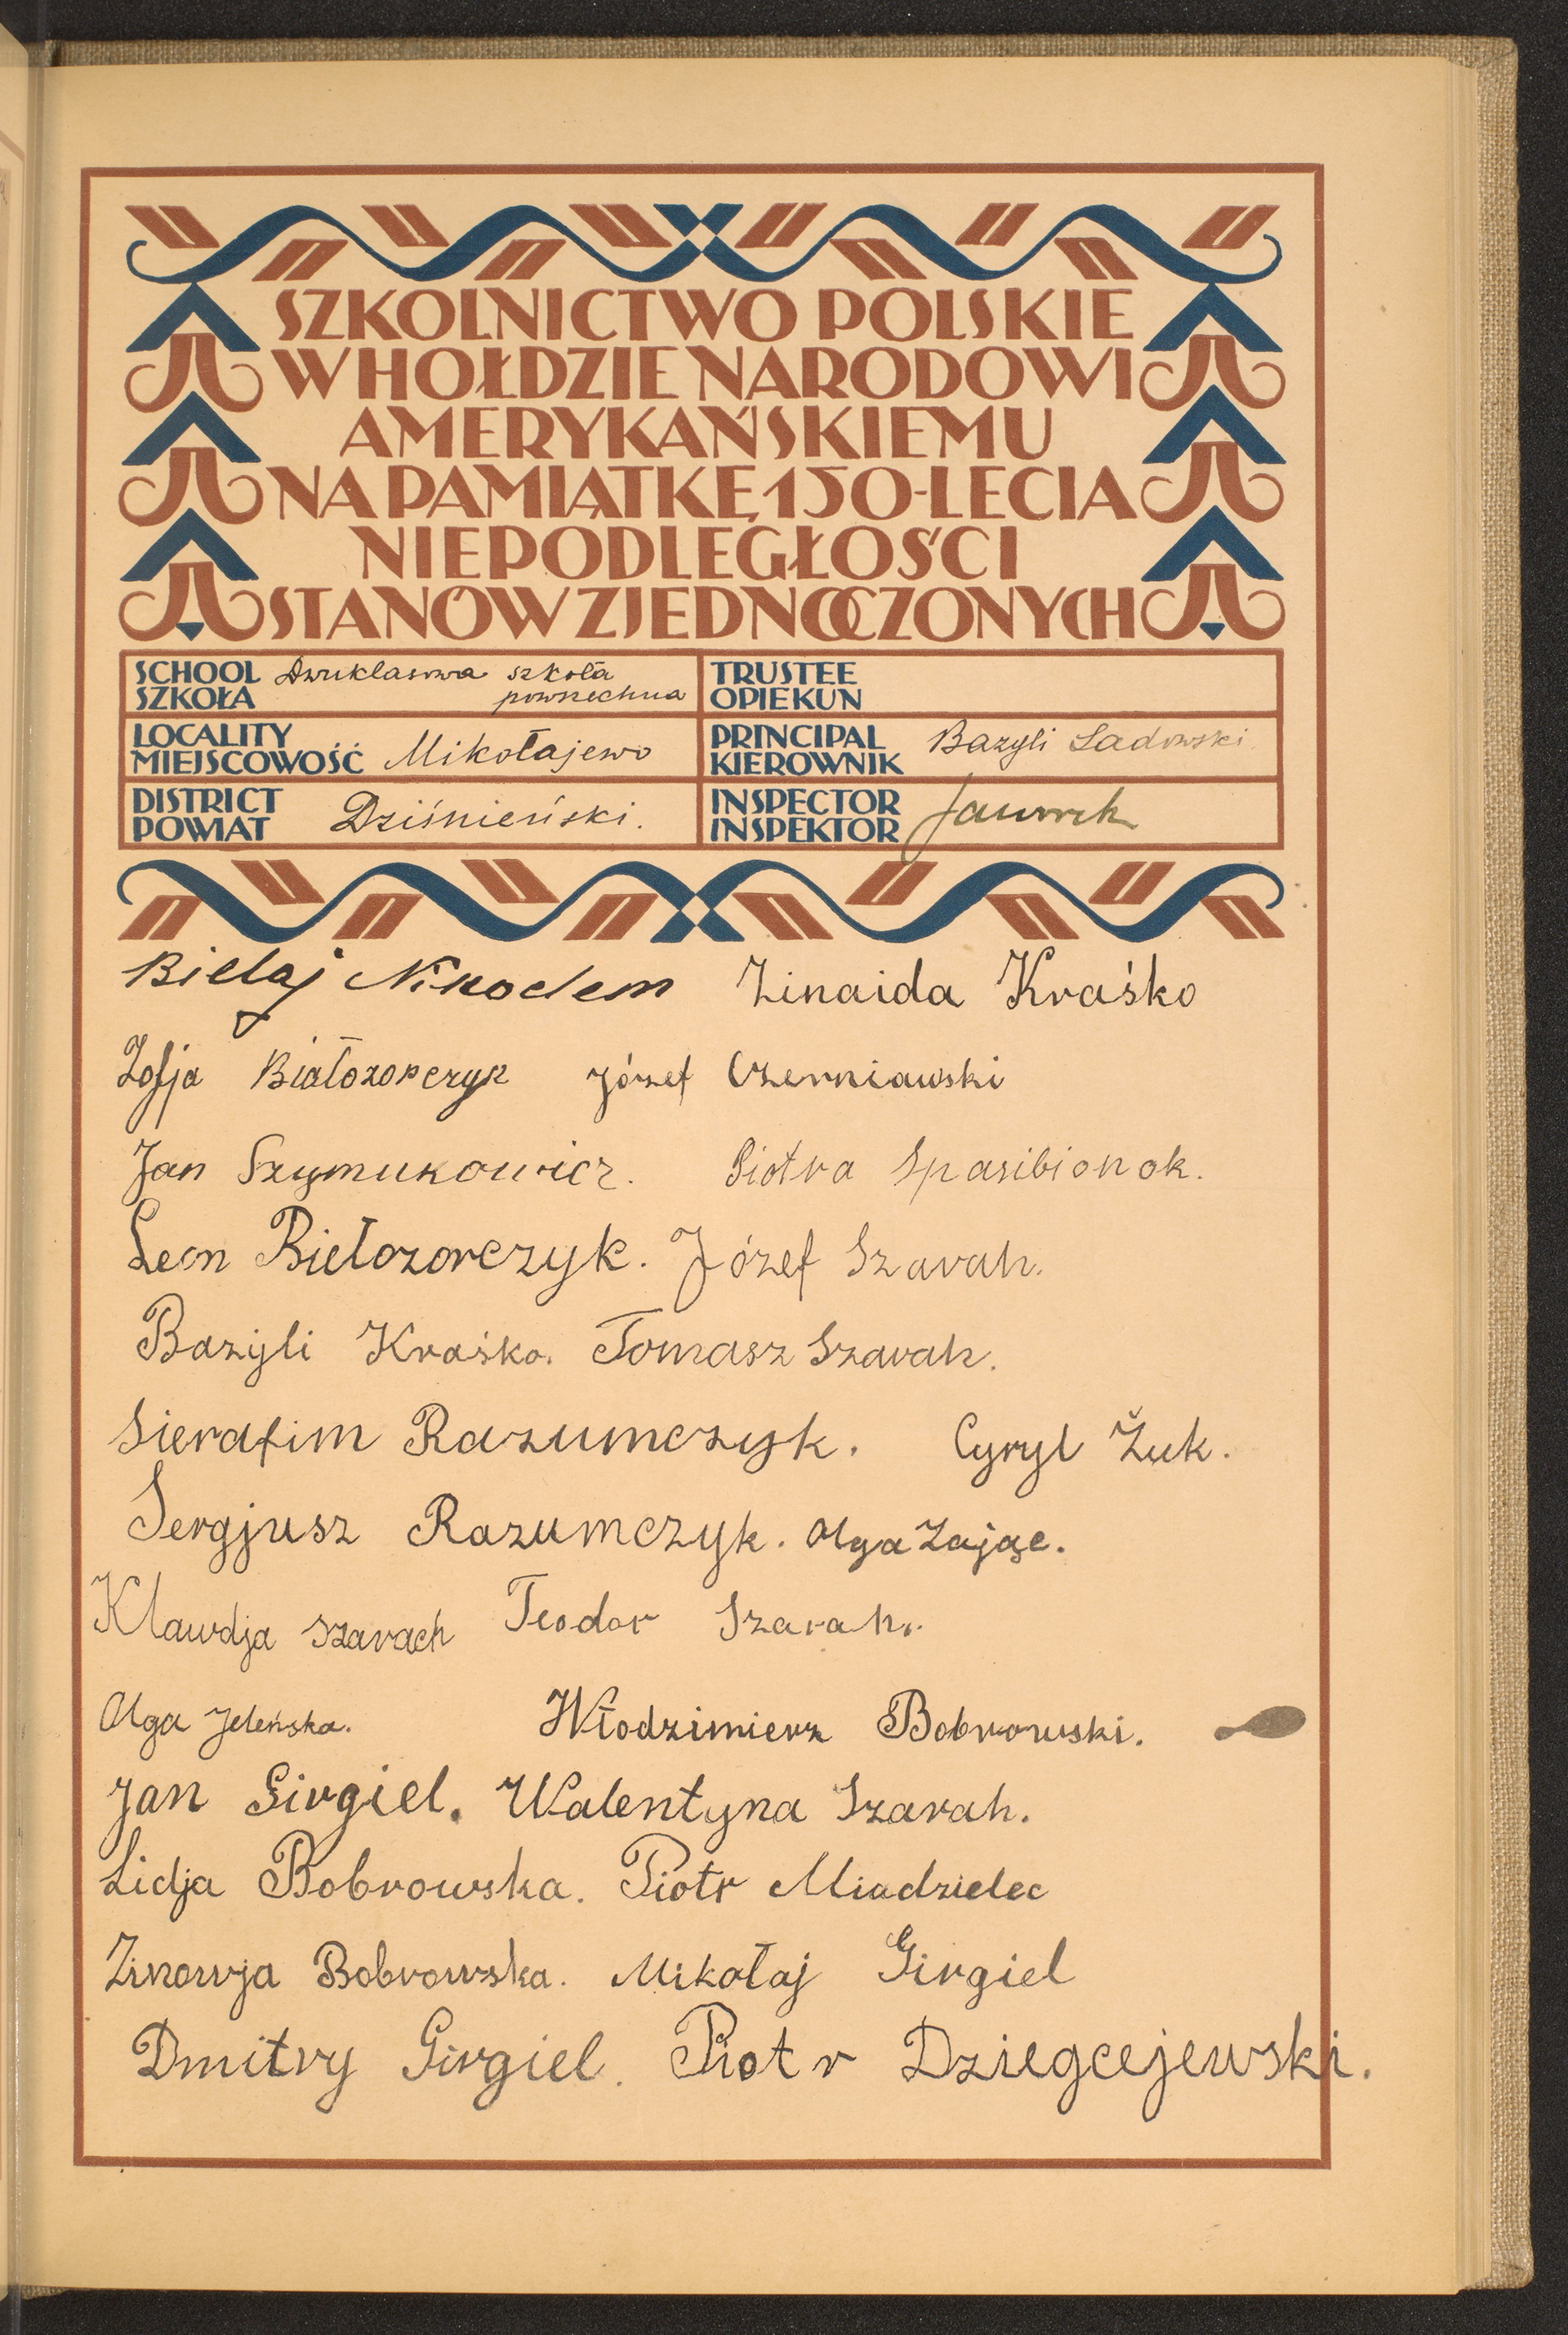 SZKOLNICTWO POLSKIE
W HOŁDZIE NARODOWI
AMERYKAŃSKIEMU
NA PAMIĄTKĘ 150-LECIA
NIEPODLEGŁOŚCI
STANÓW ZJEDNOCZONYCH
SCHOOL
SZKOŁA
Dwuklasowa szkoła
powszechna
TRUSTEE
OPIEKUN
LOCALITY
MIEJSCOWOŚĆ
Mikołajewo
PRINCIPAL
KIEROWNIK
Bazyli Sadowski
DISTRICT
POWIAT
Dziśnieński.
INSPECTOR
INSPEKTOR
Bielaj Nikodem Zinaida Kraśko
Zofja Białozorczyk Józef Czerniawski
Jan Szymukowicz. Piotra Spasibionok.
Leon Biełozorczyk. Józef Szarah.
Bazyli Kraśko. Tomasz Szarah.
Sierafim Razumczyk. Cyryl Żuk.
Sergjusz Razumczyk. Olga Zając.
Klawdja Szarach Teodor Szarah.
Olga Jeleńska. Włodzimierz Bobrowski.
Jan Girgiel. Walentyna Szarah.
Lidja Bobrowska. Piotr Miadzielec
Zinowja Bobrowska. Mikołaj Girgiel
Dmitry Girgiel. Piotr Dziegcejewski.